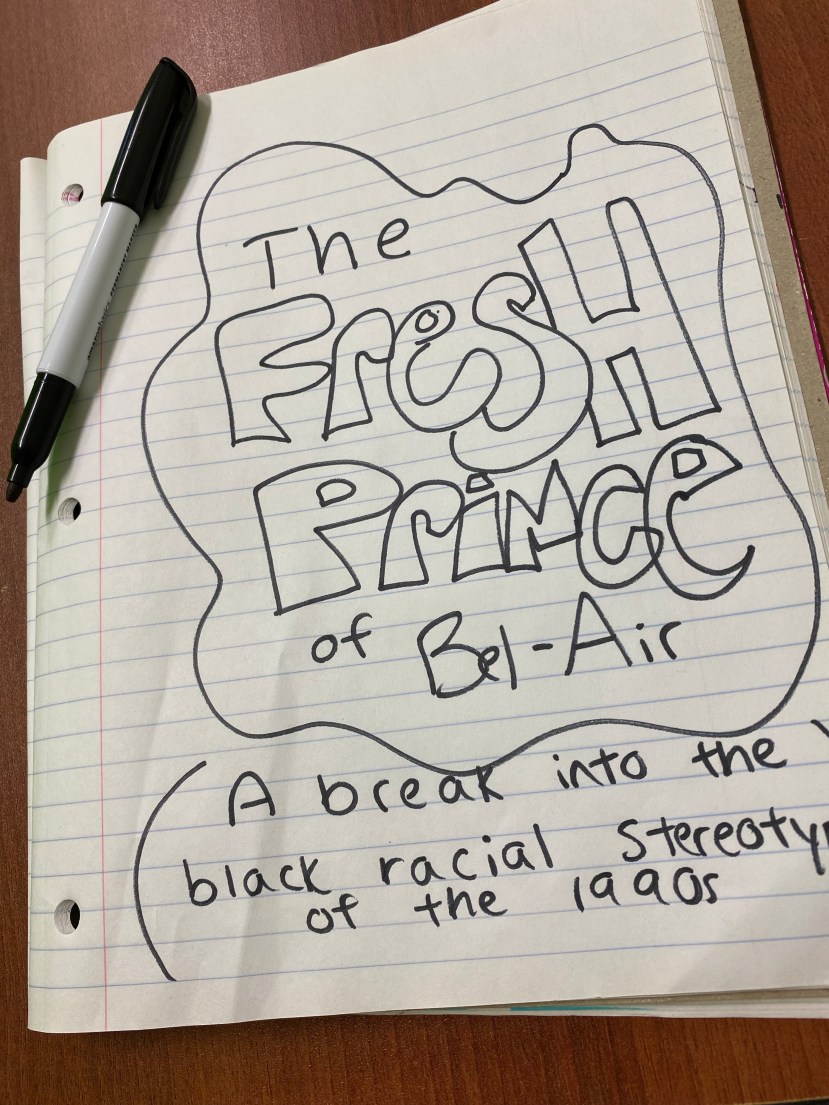 The
FresH
Prince
of Bel-Air
(A break into the
black racial
of the 1990s